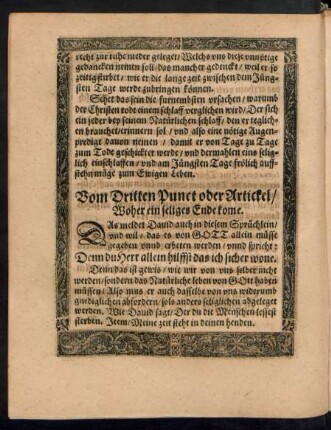 recht zur ruhe nieder geleget / Welchs vns diese vnnötige
gedancken nemen soll / das mancher gedenckt / weil er so
zeitig stirbet / wie er die lange zeit zwischen dem Jüng-
sten Tage werde zubringen können.
Sehet das sein die fürnembsten vrsachen / warumb
der Christen todt einem schlaff verglichen wird / Der sich
ein jeder bey seinem Natürlichen schlaff / den er teglich
en brauchet / erinnern sol / vnd also eine nötige Augen-
predigt dauon nemen / damit er von Tag zu Tage
zum Tode geschickter werde / vnd dermahlen eins selig-
lich einschlaffen / vnd am Jüngsten Tage frölich auff-
stehn müge zum Ewigen Leben.
Vom Dritten Punct oder Artickel /
Woher ein seliges Ende kome.
DAs meldet Dauid auch in diesem Sprüchlein /
vnd wil / das es von GOTT allein müsse
gegeben vnnd erbeten werden / vnnd spricht:
Denn du Herr allein hilffst das ich sicher wone.
Denn das ist gewis / wie wir von vns selber nicht
werden / sondern das Natürliche leben von GOtt haben
müssen / Also mus er auch dasselbe von vns wider vnd
gnediglichen abfordern / sols anders seliglichen abgeleget
werden. Wie Dauid saget / Der du die Menschen lessest
sterben. Item / Meine zeit steht in deinen henden.